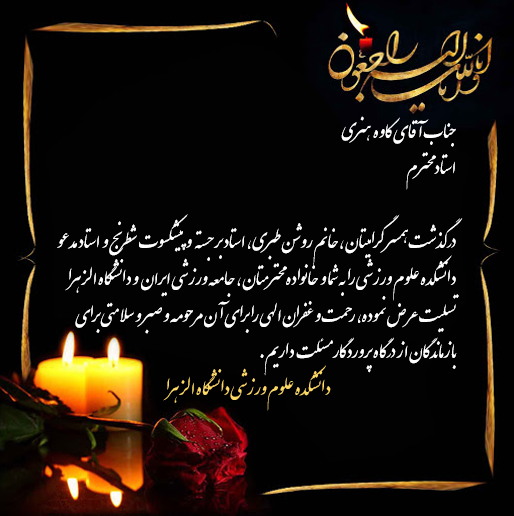 انا لله و انا الیه راجعون
جناب آقای کاوه هنری
استاد محترم
درگذشت همسر گرامیتان، خانم روشن طبری، استاد برجسته و پیشکسوت شطرنج و استاد مدعو
دانشکده علوم ورزشی را به شما و خانواده محترمتان، جامعه ورزشی ایران و دانشگاه الزهرا
تسلیت عرض نموده، رحمت و غفران الهی را برای آن مرحومه و صبر و سلامتی برای
بازماندگان از درگاه پروردگار مسئلت داریم.
دانشکده علوم ورزشی دانشگاه الزهرا